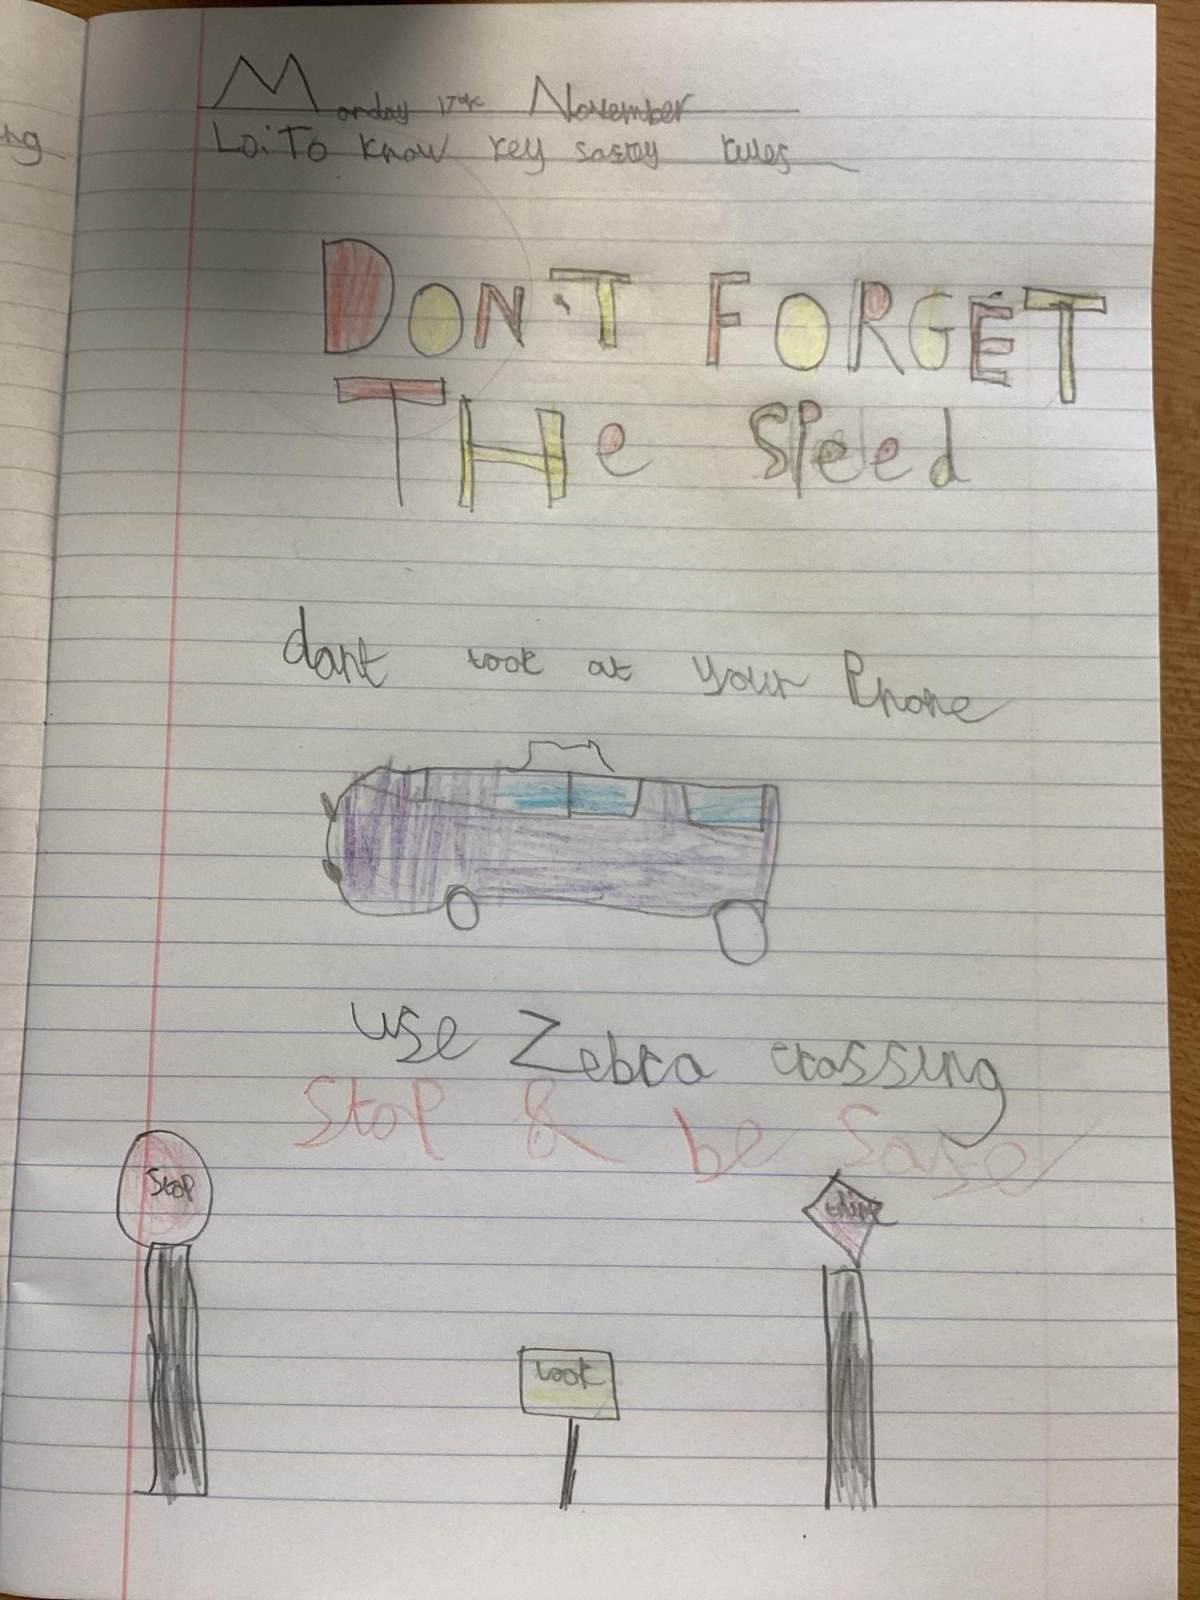 ng
Monday 17th November
Lo: To know key safety rules
DON'T FORGET
THe speed
dont look at your Phone
use Zebra crossing
Stop & be Safe
Stop
think
look